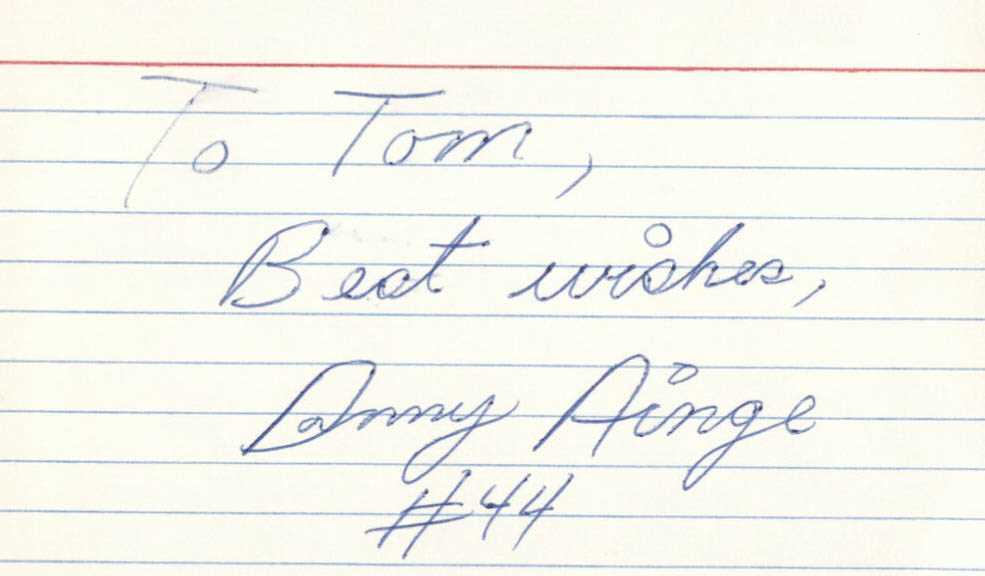 To Tom,
Best wishes,
Danny Ainge
#44